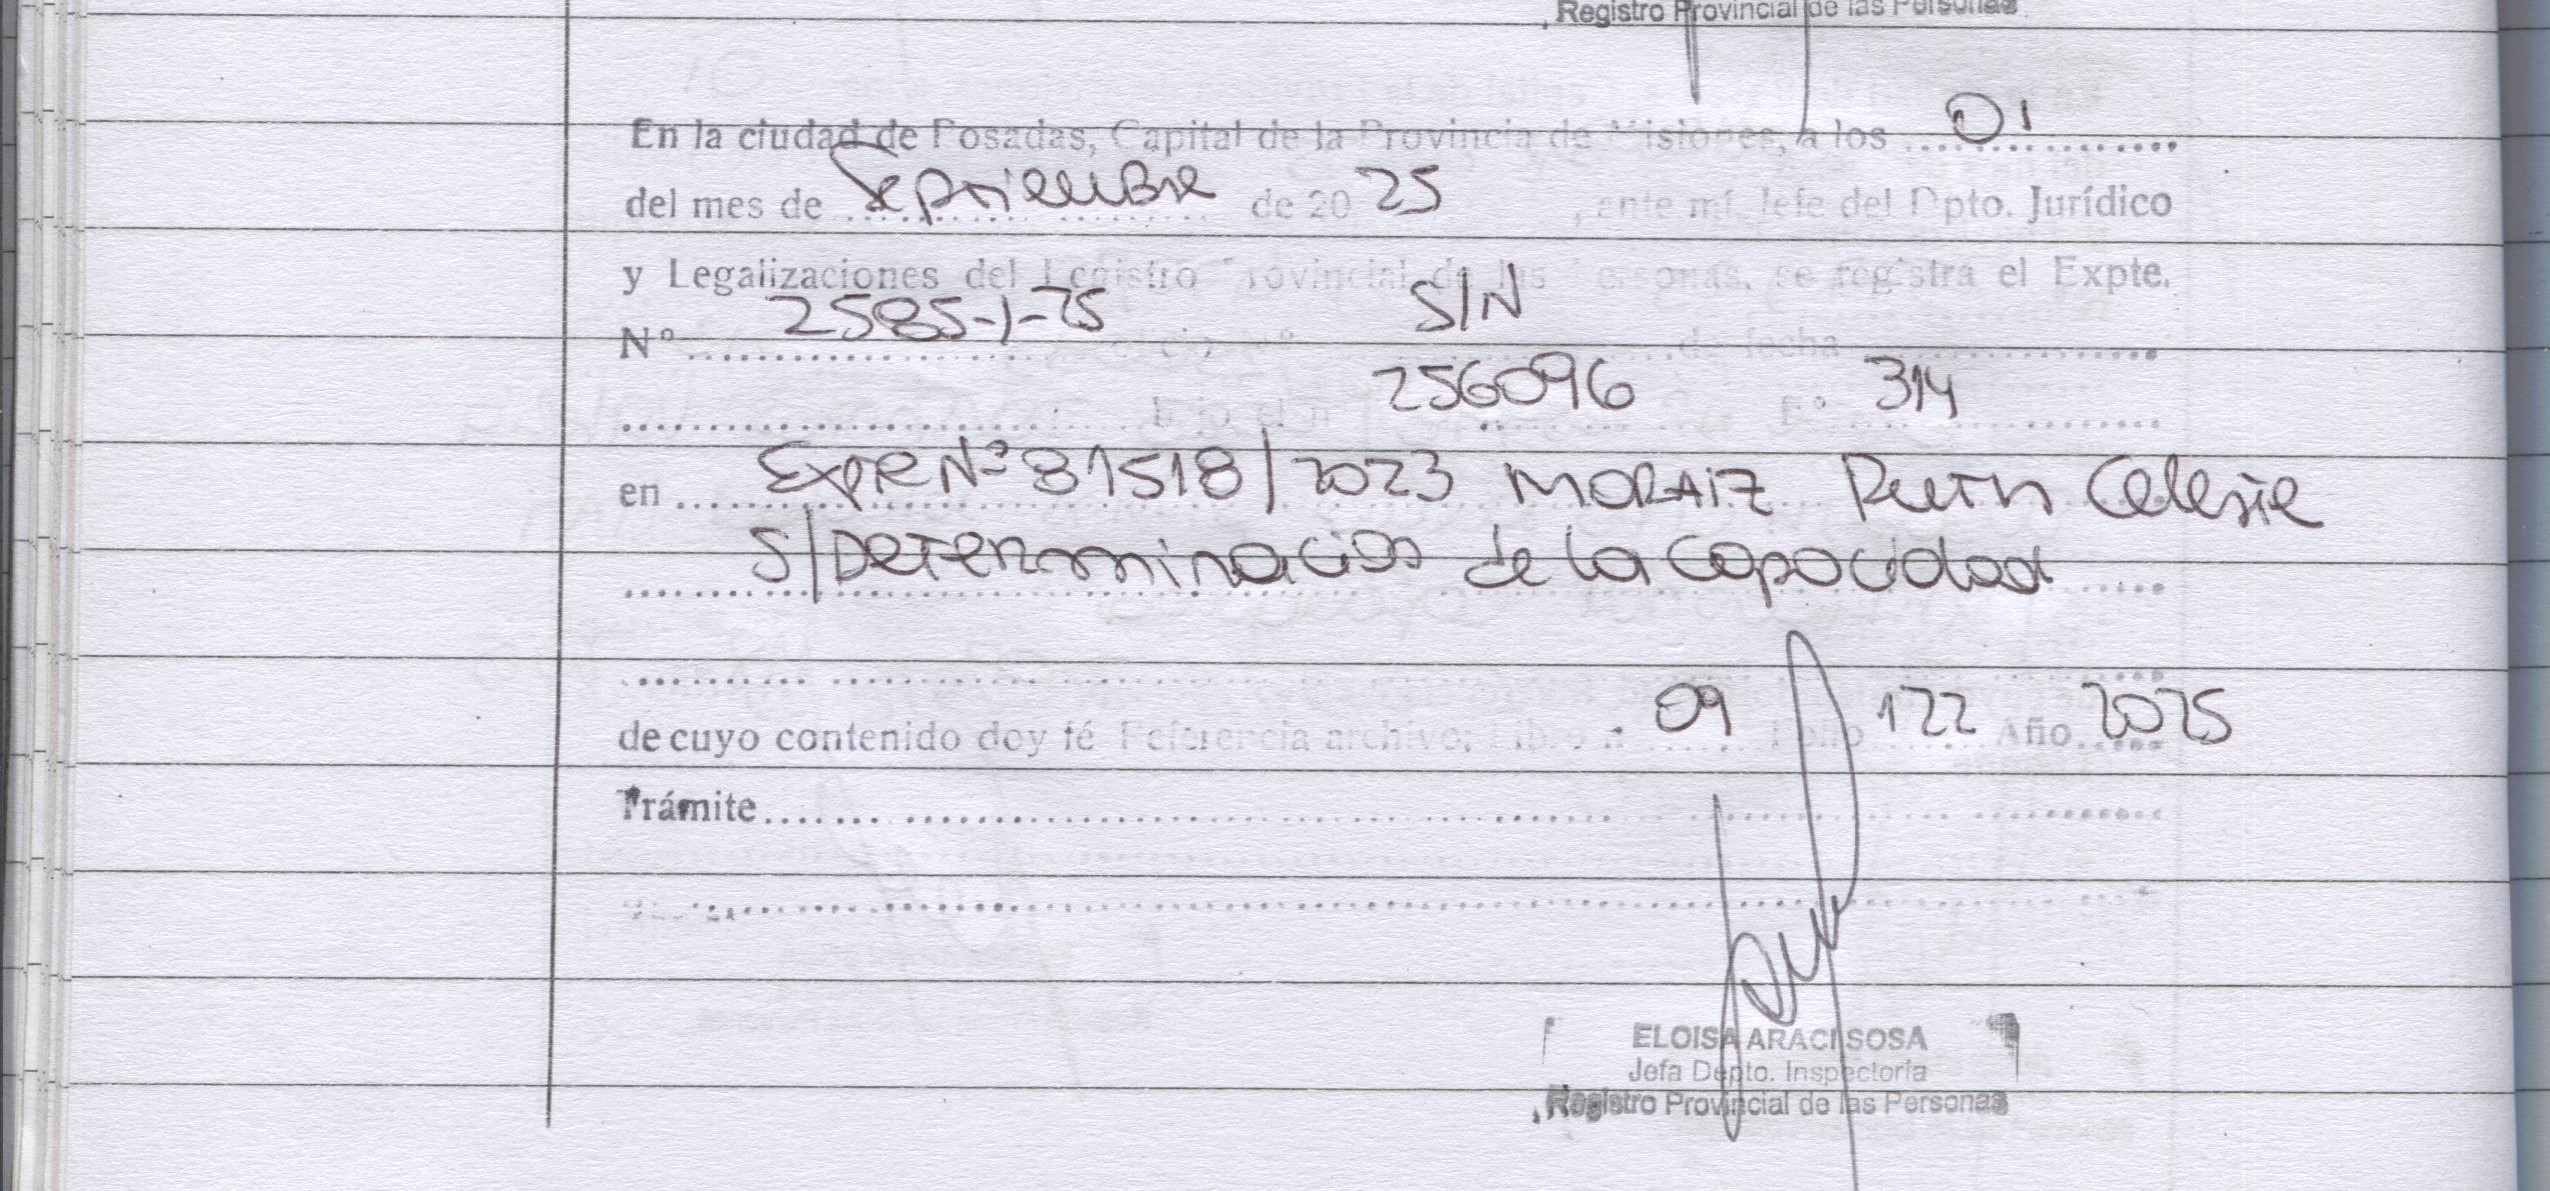 Registro Provincial de las Personas
En la ciudad de Posadas, Capital de la Provincia de Misiones, a los 01
del mes de Septiembre de 20 25, ante mí, Jefe del Dpto. Jurídico
y Legalizaciones del Registro Provincial de las Personas, se registra el Expte.
Nº 2585-J-25 S/N de fecha
bajo el nº 256096 Fº 314
en Expte Nº 81518/2023 MORAIZ Ruth Celeste
S/Determinacion de la Capacidad
de cuyo contenido doy fé Referencia archivo: Libro nº 09 Folio 122 Año 2025
Trámite
ELOISA ARACI SOSA
Jefa Depto. Inspectoría
Registro Provincial de las Personas